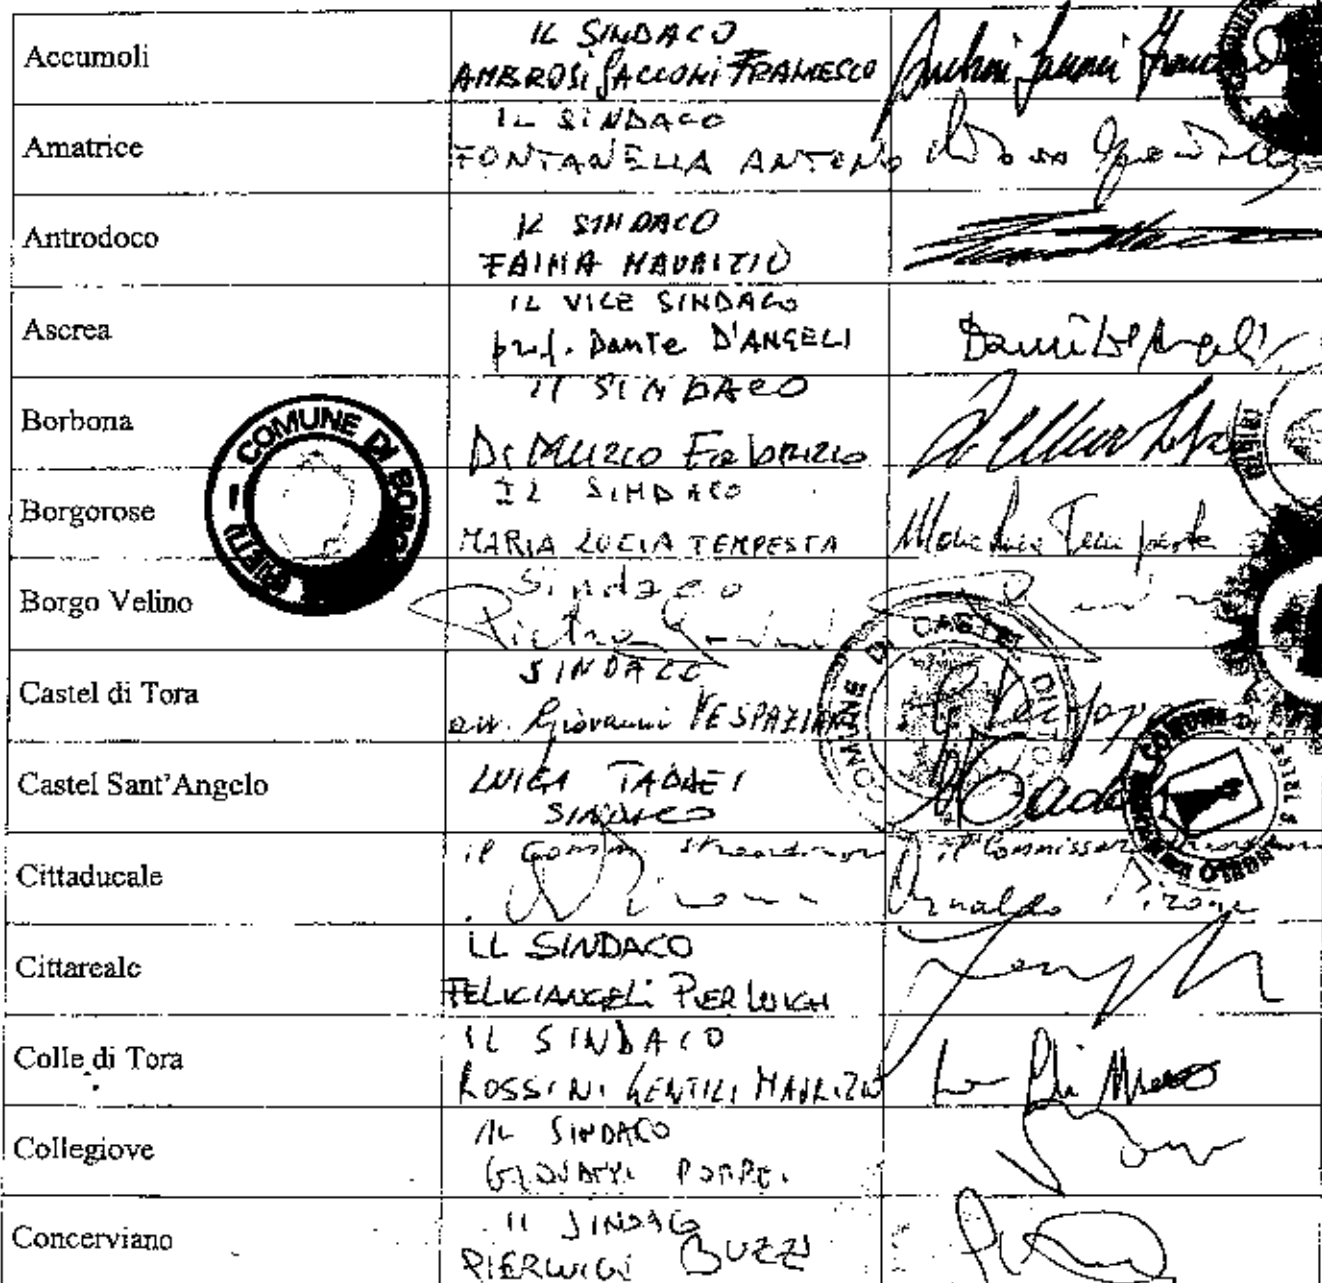 Accumoli
IL SINDACO
AMBROSI SACCONI FRANCESCO
Amatrice
IL SINDACO
FONTANELLA ANTONIO
Antrodoco
IL SINDACO
FAINA MAURIZIO
Ascrea
IL VICE SINDACO
prof. Dante D'ANGELI
Dante D'Angeli
Borbona
il SINDACO
Di MUZIO Fabrizio
COMUNE DI BORGO
RIETI
Borgorose
IL SINDACO
MARIA LUCIA TEMPESTA
Maria Lucia Tempesta
Borgo Velino
Sindaco
Pietro
Castel di Tora
SINDACO
avv. Giovanni VESPAZIANI
COMUNE DI CASTEL DI TORA
Castel Sant'Angelo
LUIGI TADDEI
SINDACO
COMUNE DI
Cittaducale
il Comm. straordinario
il Commissario
Arnaldo Pirone
Cittareale
IL SINDACO
FELICIANGELI PIERLUIGI
Colle di Tora
IL SINDACO
ROSSINI GENTILI MAURIZIO
Collegiove
IL SINDACO
GIOVANNI POMPEI
Concerviano
Il SINDACO
PIERLUIGI BUZZI